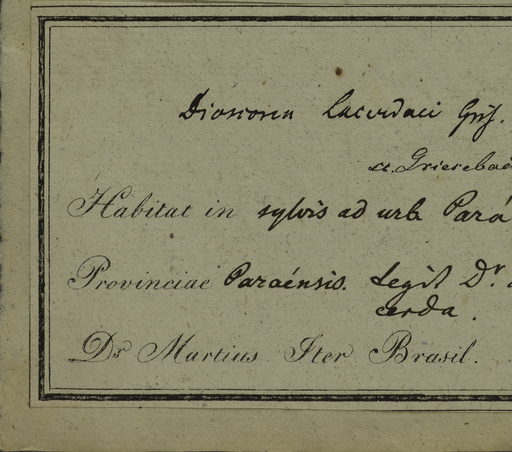 Dioscorea Lacerdaei Gris.
sc. Grisebac
Habitat in sylvis ad urb. Pará
Provinciae Paraënsis. Legit Dr.
cerda.
Dr. Martius Iter Brasil.